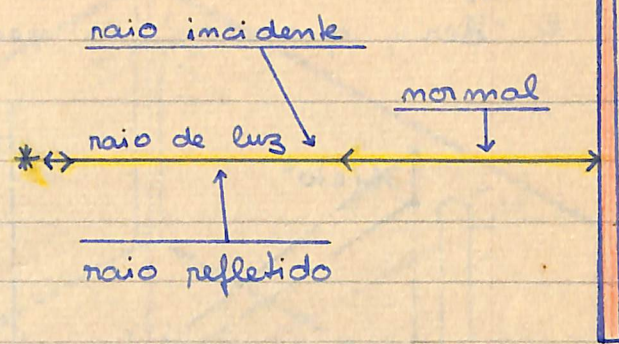 raio incidente
normal
raio de luz
raio refletido